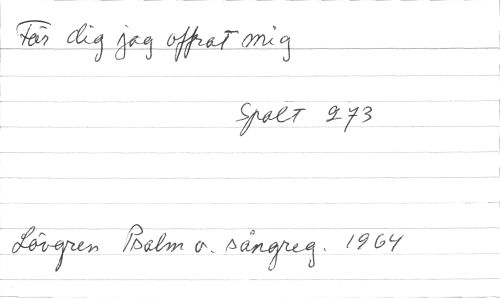 För dig jag offrat mig
Spalt 273
Lövgren Psalm o. sångreg. 1964